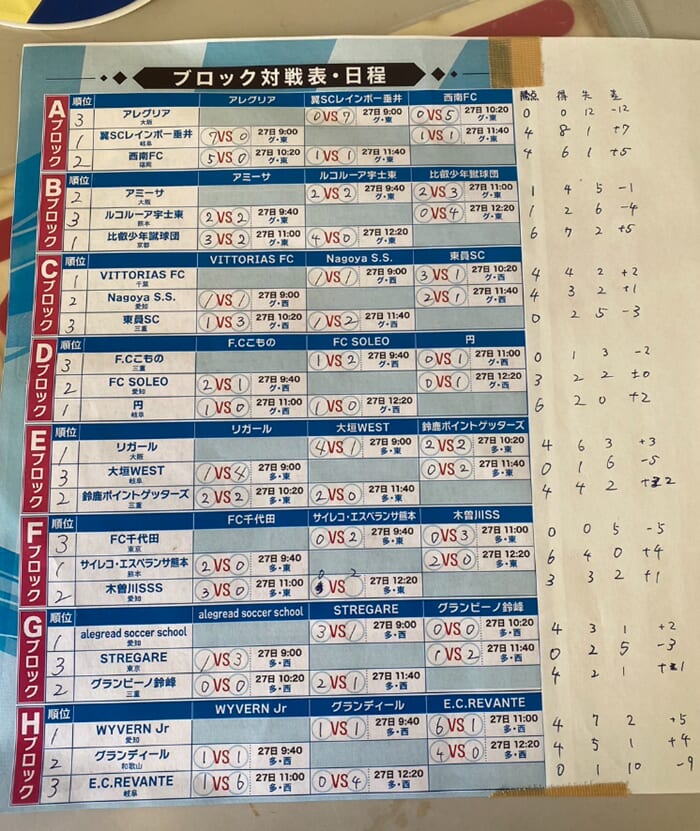 ブロック対戦表・日程
勝点 得 失 差
Aブロック 順位 アレグリア 翼SCレインボー垂井 西南FC
3 アレグリア 大阪 0 VS 7 27日 9:00 グ・東 0 VS 5 27日 10:20 グ・東 0 0 12 -12
1 翼SCレインボー垂井 岐阜 7 VS 0 27日 9:00 グ・東 1 VS 1 27日 11:40 グ・東 4 8 1 +7
2 西南FC 福岡 5 VS 0 27日 10:20 グ・東 1 VS 1 27日 11:40 グ・東 4 6 1 +5
Bブロック 順位 アミーサ ルコルーア宇土東 比叡少年蹴球団
2 アミーサ 大阪 2 VS 2 27日 9:40 グ・東 2 VS 3 27日 11:00 グ・東 1 4 5 -1
3 ルコルーア宇土東 熊本 2 VS 2 27日 9:40 グ・東 0 VS 4 27日 12:20 グ・東 1 2 6 -4
1 比叡少年蹴球団 京都 3 VS 2 27日 11:00 グ・東 4 VS 0 27日 12:20 グ・東 6 7 2 +5
Cブロック 順位 VITTORIAS FC Nagoya S.S. 東員SC
1 VITTORIAS FC 千葉 1 VS 1 27日 9:00 グ・西 3 VS 1 27日 10:20 グ・西 4 4 2 +2
2 Nagoya S.S. 愛知 1 VS 1 27日 9:00 グ・西 2 VS 1 27日 11:40 グ・西 4 3 2 +1
3 東員SC 三重 1 VS 3 27日 10:20 グ・西 1 VS 2 27日 11:40 グ・西 0 2 5 -3
Dブロック 順位 F.Cこもの FC SOLEO 円
3 F.Cこもの 三重 1 VS 2 27日 9:40 グ・西 0 VS 1 27日 11:00 グ・西 0 1 3 -2
2 FC SOLEO 愛知 2 VS 1 27日 9:40 グ・西 0 VS 1 27日 12:20 グ・西 3 2 2 ±0
1 円 岐阜 1 VS 0 27日 11:00 グ・西 1 VS 0 27日 12:20 グ・西 6 2 0 +2
Eブロック 順位 リガール 大垣WEST 鈴鹿ポイントゲッターズ
1 リガール 大阪 4 VS 1 27日 9:00 多・東 2 VS 2 27日 10:20 多・東 4 6 3 +3
3 大垣WEST 岐阜 1 VS 4 27日 9:00 多・東 0 VS 2 27日 11:40 多・東 0 1 6 -5
2 鈴鹿ポイントゲッターズ 三重 2 VS 2 27日 10:20 多・東 2 VS 0 27日 11:40 多・東 4 4 2 +2
Fブロック 順位 FC千代田 サイレコ・エスペランサ熊本 木曽川SS
3 FC千代田 東京 0 VS 2 27日 9:40 多・東 0 VS 3 27日 11:00 多・東 0 0 5 -5
1 サイレコ・エスペランサ熊本 熊本 2 VS 0 27日 9:40 多・東 2 VS 0 27日 12:20 多・東 6 4 0 +4
2 木曽川SSS 愛知 3 VS 0 27日 11:00 多・東 0 VS 2 27日 12:20 多・東 3 3 2 +1
Gブロック 順位 alegread soccer school STREGARE グランビーノ鈴峰
1 alegread soccer school 愛知 3 VS 1 27日 9:00 多・西 0 VS 0 27日 10:20 多・西 4 3 1 +2
3 STREGARE 東京 1 VS 3 27日 9:00 多・西 1 VS 2 27日 11:40 多・西 0 2 5 -3
2 グランビーノ鈴峰 三重 0 VS 0 27日 10:20 多・西 2 VS 1 27日 11:40 多・西 4 2 1 +1
Hブロック 順位 WYVERN Jr グランディール E.C.REVANTE
1 WYVERN Jr 愛知 1 VS 1 27日 9:40 多・西 6 VS 1 27日 11:00 多・西 4 7 2 +5
2 グランディール 和歌山 1 VS 1 27日 9:40 多・西 4 VS 0 27日 12:20 多・西 4 5 1 +4
3 E.C.REVANTE 岐阜 1 VS 6 27日 11:00 多・西 0 VS 4 27日 12:20 多・西 0 1 10 -9